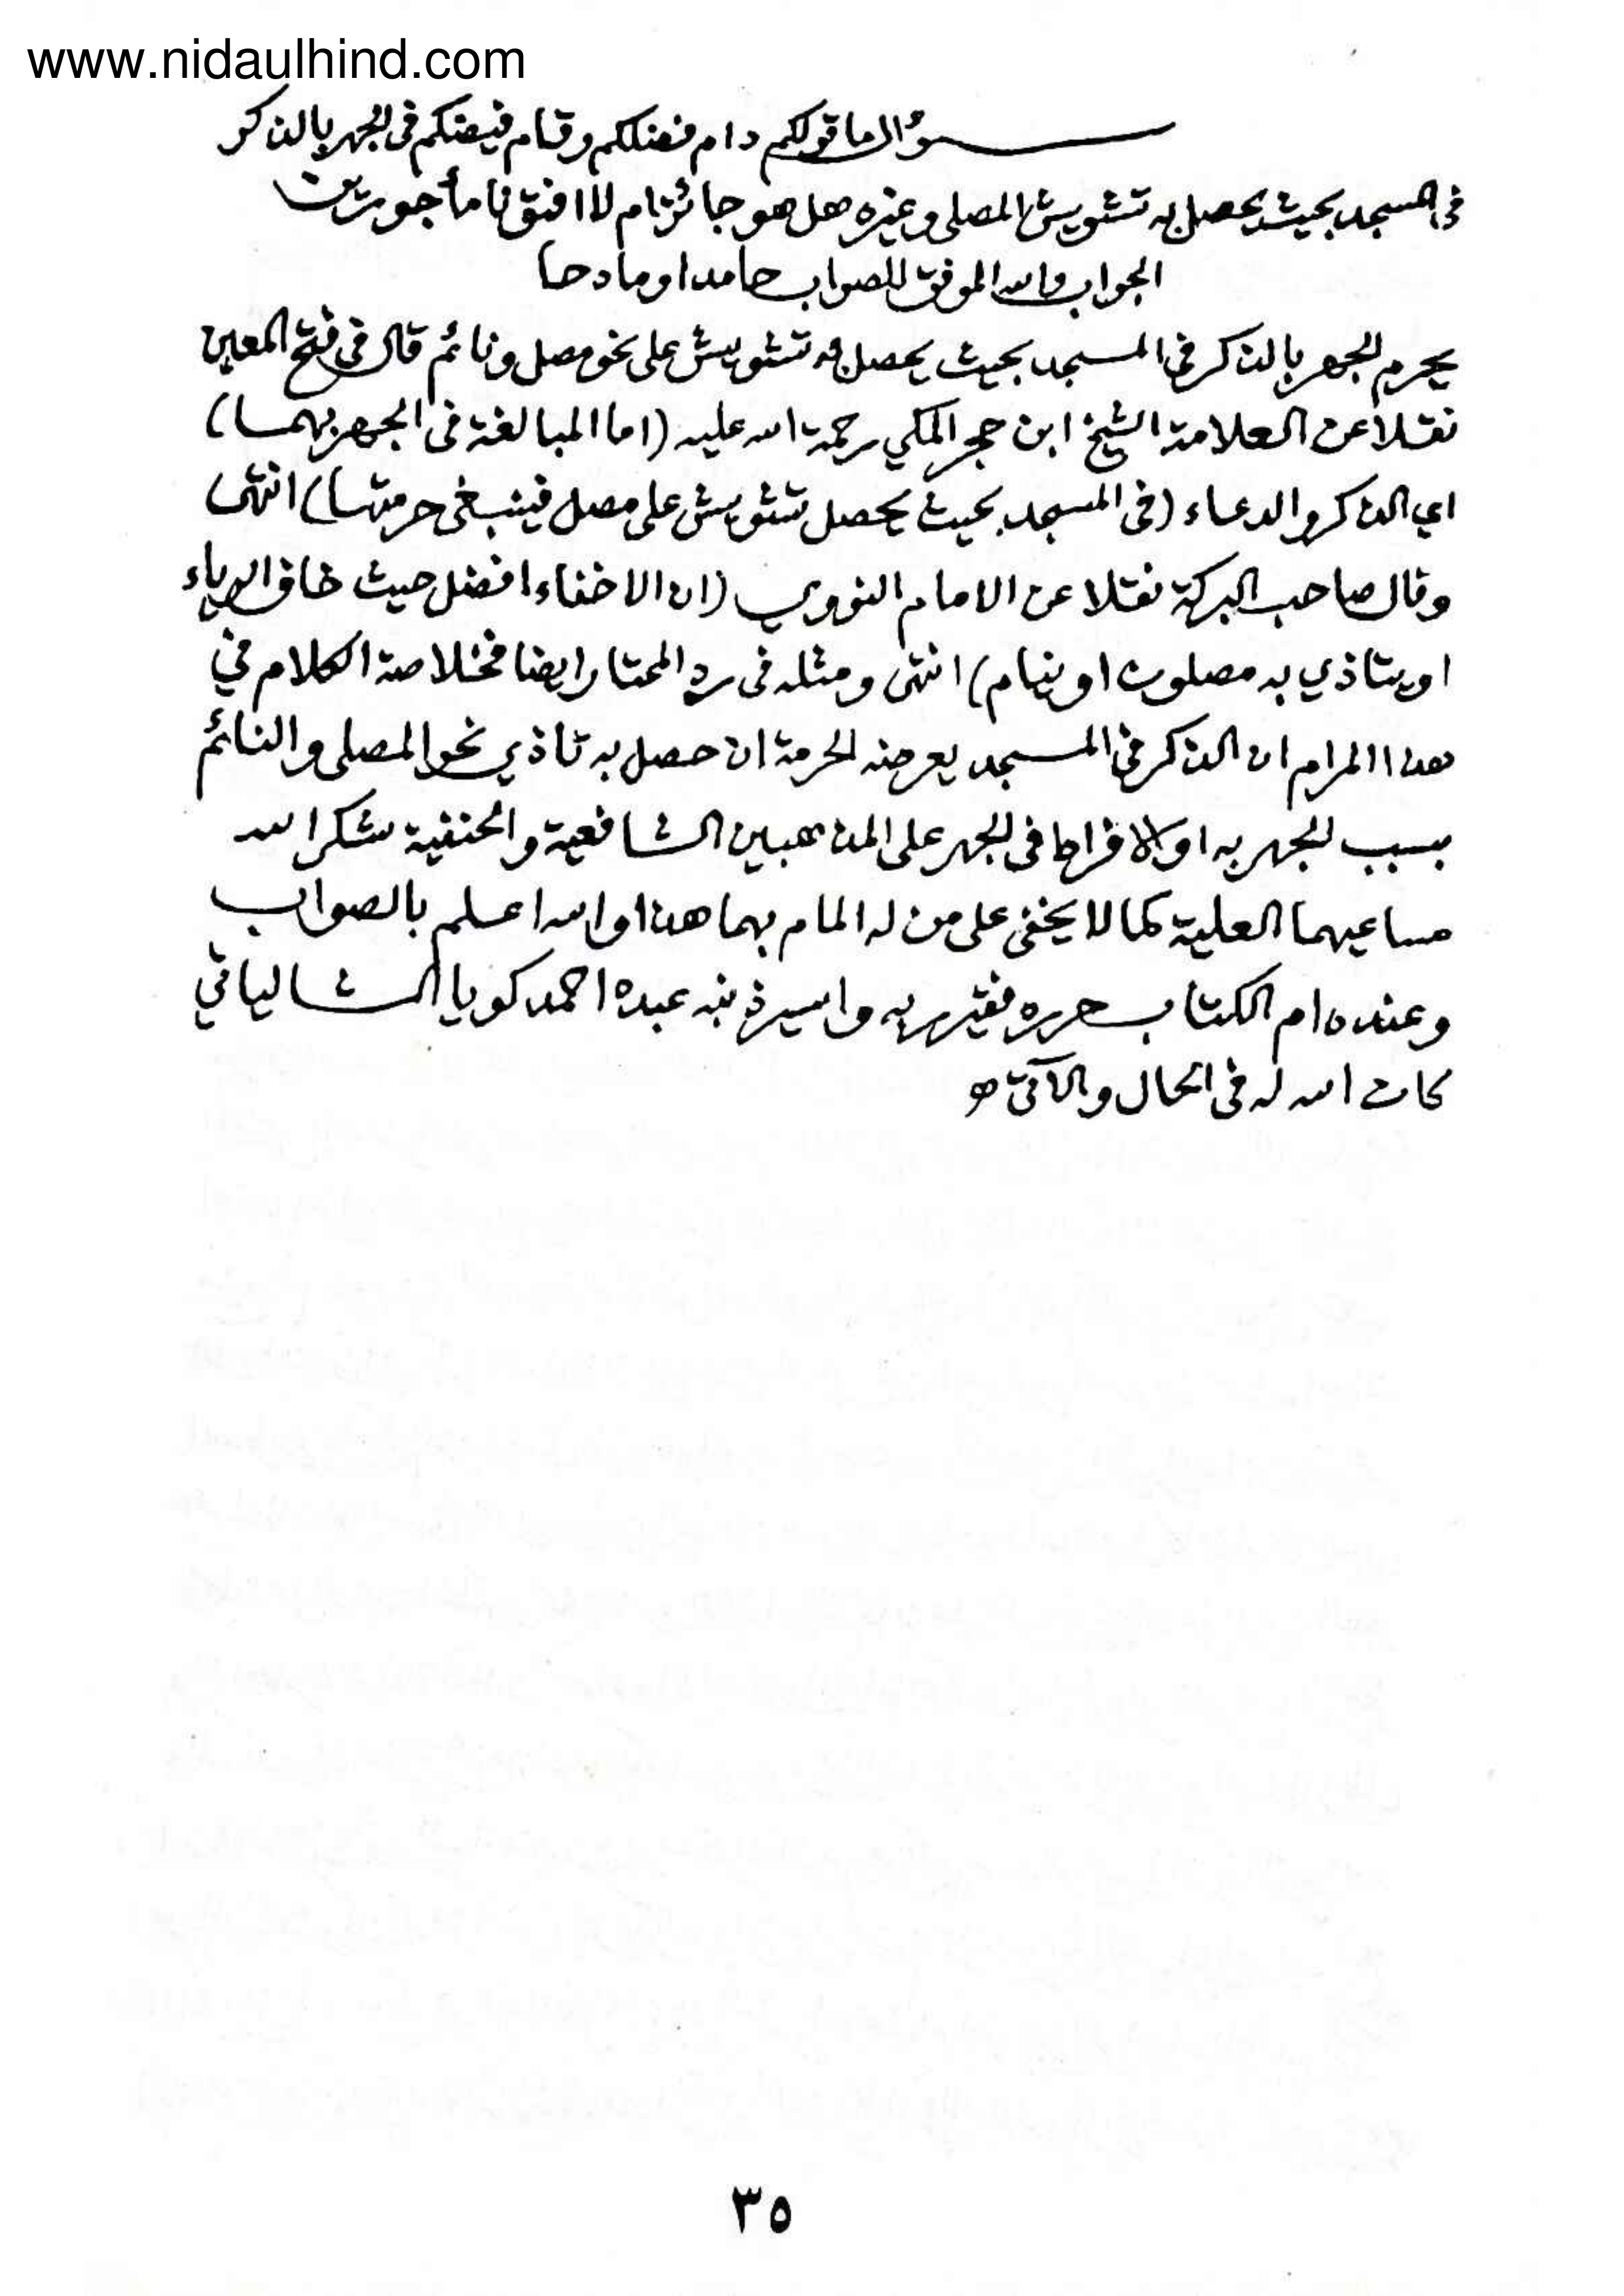 www.nidaulhind.com
سؤال ما قولكم دام فضلكم وقام فيضكم في الجهر بالذكر
في المسجد بحيث يحصل به تشويش المصلي وغيره هل هو جائز ام لا افتونا مأجورين
الجواب والله الموفق للصواب حامدا ومادحا
يحرم الجهر بالذكر في المسجد بحيث يحصل به تشويش على نحو مصل ونائم قال في فتح المعين
نقلا عن العلامة الشيخ ابن حجر المكي رحمة الله عليه (اما المبالغة في الجهر بهما)
اي الذكر والدعاء (في المسجد بحيث يحصل تشويش على مصل فينبغي حرمتها) انتهى
وقال صاحب البركة نقلا عن الامام النووي (ان الاخفاء افضل حيث خاف الرياء
او يتاذي به مصلون او ينام) انتهى ومثله في رد المحتار ايضا فخلاصة الكلام في
هذا المرام ان الذكر في المسجد يعرضه الحرمة ان حصل به تاذي نحو المصلي والنائم
بسبب الجهر به او الافراط في الجهر على المذهبين الشافعية والحنفية شكر الله
مساعيهما العلية كما لا يخفى على من له المام بهما هذا والله اعلم بالصواب
وعنده ام الكتاب حرره فقير ربه واسير ذنبه عبده احمد كويا الشالياتي
كان الله له في الحال والآتي
٣٥